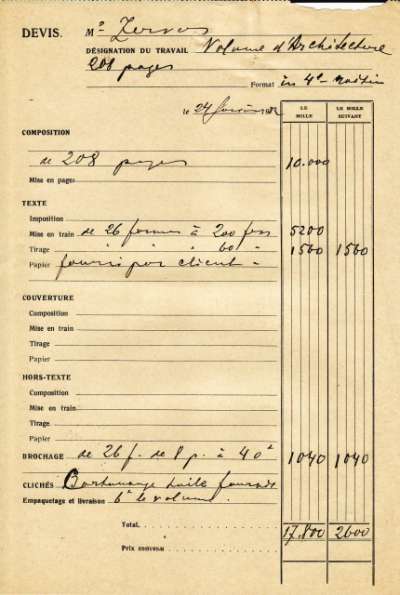 DEVIS. Mr Zervos
DÉSIGNATION DU TRAVAIL Volume d'Architecture
208 pages
Format in 4°
le 24
LE MILLE
LE MILLE SUIVANT
COMPOSITION
de 208 pages 10.000
Mise en pages
TEXTE
Imposition
Mise en train de 26 formes à 200 frs 5200
Tirage " " " 60 " 1560 1560
Papier fourni par client -
COUVERTURE
Composition
Mise en train
Tirage
Papier
HORS-TEXTE
Composition
Mise en train
Tirage
Papier
BROCHAGE de 26 f. de 8 p. à 40 1040 1040
CLICHÉS Cartonnage toile
Empaquetage et livraison 6 le volume.
Total. 17.800 2600
Prix convenu